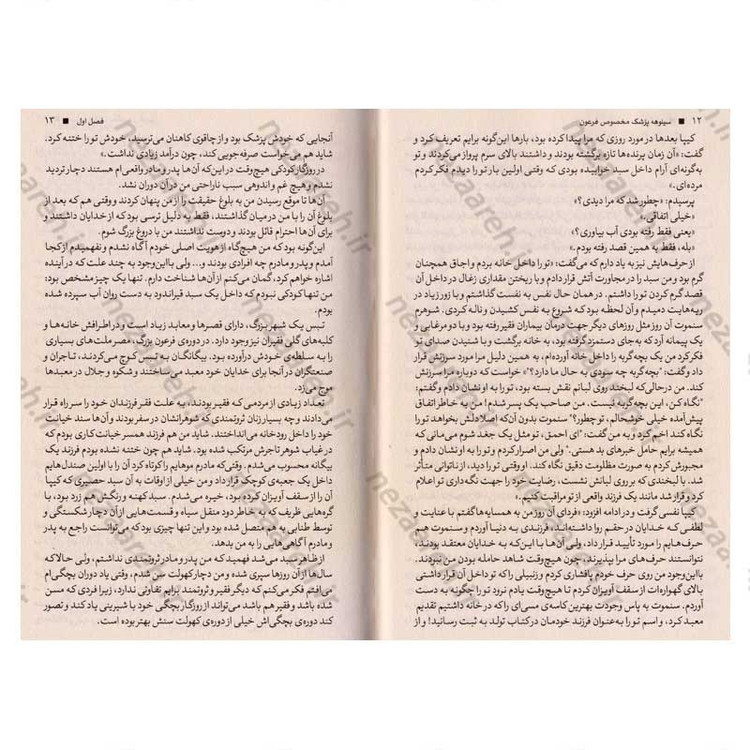 ۱۲ ■ سینوهه پزشک مخصوص فرعون
کیپا بعدها در مورد روزی که مرا پیدا کرده بود، بارها این‌گونه برایم تعریف کرد و
گفت: «آن زمان پرنده‌ها تازه برگشته بودند و داشتند بالای سرم پرواز می‌کردند و تو
به‌گونه‌ای آرام داخل سبد خوابیده بودی که وقتی اولین بار تو را دیدم فکر کردم
مرده‌ای.»
پرسیدم: «چطور شد که مرا دیدی؟»
«خیلی اتفاقی.»
«یعنی فقط رفته بودی آب بیاوری؟»
«بله، فقط به همین قصد رفته بودم.»
از حرف‌هایش نیز به یاد دارم که می‌گفت: «تو را داخل خانه بردم و اجاق همچنان
گرم بود و من سبد را در مجاورت آتش قرار دادم و با ریختن مقداری زغال در داخل آن
قصد گرم کردن تو را داشتم. در همان حال نفس به نفست گذاشتم و با زور زیاد در
ریه‌هایت دمیدم و آن لحظه بود که شروع به نفس کشیدن و ناله کردی. شوهرم
سنموت آن روز مثل روزهای دیگر جهت درمان بیماران فقیر رفته بود و با دو مرغابی و
یک پیمانه آرد که به‌جای دستمزد گرفته بود، به خانه برگشت و با شنیدن صدای تو
فکر کرد من یک بچه‌گربه را داخل خانه آورده‌ام، به همین دلیل مرا مورد سرزنش قرار
داد و گفت: "بچه‌گربه چه سودی به حال ما دارد؟"» او خواست که دوباره مرا سرزنش
کند. من درحالی‌که لبخند روی لبانم نقش بسته بود، تو را به او نشان دادم و گفتم:
"نگاه کن، این بچه‌گربه نیست. من صاحب یک پسر شدم! من به خاطر اتفاق
پیش‌آمده خیلی خوشحالم، تو چطور؟" سنموت بدون آن‌که اصلاً دلش بخواهد تو را
نگاه کند اخم کرد و به من گفت: "ای احمق، تو مثل یک جغد شوم می‌مانی که
همیشه برایم حامل خبرهای بد هستی." ولی من اصرار کردم و تو را به او نشان دادم و
مجبورش کردم به صورت مظلومت دقیق نگاه کند. او وقتی تو را دید، از ناتوانی متأثر
شد. با لبخندی که بر روی لبانش نشست، رضایت خود را جهت نگه‌داری تو اعلام
کرد و قرار شد مانند یک فرزند واقعی از تو مراقبت کنیم.»
کیپا نفسی گرفت و در ادامه افزود: «فردای آن روز من به همسایه‌ها گفتم با عنایت و
لطفی که خدایان در حقم روا داشته‌اند، فرزندی به دنیا آوردم و سنموت هم
حرف‌هایم را مورد تأیید قرار داد، ولی آن‌ها با این‌که به خدایان معتقد بودند،
نتوانستند حرف‌های مرا بپذیرند، چون هیچ‌وقت شاهد حامله بودن من نبودند.
بااین‌وجود من روی حرف خودم پافشاری کردم و زنبیلی را که تو داخل آن قرار داشتی
بالای گهواره‌ات از سقف آویزان کردم تا هیچ‌وقت یادم نرود تو را چگونه به دست
آوردم. سنموت به پاس وجودت بهترین کاسه‌ی مسی‌ای را که در خانه داشتیم تقدیم
معبد کرد، و اسم تو را به‌عنوان فرزند خودمان در کتاب تولد به ثبت رسانید! و از
فصل اول ■ ۱۳
آنجایی که خودش پزشک بود و از چاقوی کاهنان می‌ترسید، خودش تو را ختنه کرد.
شاید هم می‌خواست صرفه‌جویی کند، چون درآمد زیادی نداشت.»
در روزگار کودکی هیچ‌وقت در این‌که آن‌ها پدر و مادر واقعی‌ام هستند دچار تردید
نشدم و هیچ غم و اندوهی سبب ناراحتی من در آن دوران نشد.
آن‌ها تا موقع رسیدن من به بلوغ حقیقت را از من پنهان کردند و وقتی هم که بعد از
بلوغ آن را با من در میان گذاشتند، فقط به دلیل ترسی بود که از خدایان داشتند و
برای آن‌ها احترام قائل بودند و دوست نداشتند من با دروغ بزرگ شوم.
این‌گونه بود که من هیچ‌گاه از هویت اصلی خودم آگاه نشدم و نفهمیدم از کجا
آمدم و پدر و مادرم چه افرادی بودند و... ولی بااین‌وجود به چند علت که در آینده
اشاره خواهم کرد، گمان می‌کنم از آن‌ها شناخت دارم. تنها یک چیز مشخص بود:
من تنها کودکی نبودم که داخل یک سبد قیراندود به دست روان آب سپرده شده
بودم.
تبس یک شهر بزرگ، دارای قصرها و معابد زیاد است و در اطرافش خانه‌ها و
کلبه‌های گلی فقیران نیز وجود دارد. در دوره‌ی فرعون بزرگ، مصر ملت‌های بسیاری
را به سلطه‌ی خودش درآورده بود. بیگانگان به تبس کوچ می‌کردند، تاجران و
صنعتگران در آنجا برای خدایان خود معبد می‌ساختند و شکوه و جلال در معبدها
موج می‌زد.
تعداد زیادی از مردمی که فقیر بودند، به علت فقر فرزندان خود را سر راه قرار
می‌دادند و چه بسیار زنان ثروتمندی که شوهرانشان در سفر بودند و آن‌ها سند خیانت
خود را داخل رودخانه می‌انداختند. شاید من هم فرزند همسر خیانت‌کاری بودم که
در غیاب شوهر تاجرش مرتکب شده بود. شاید هم چون ختنه نشده بودم فرزند یک
بیگانه محسوب می‌شدم. وقتی‌که مادرم موهایم را کوتاه کرد آن را با اولین صندل‌هایم
داخل یک جعبه‌ی کوچک قرار داد و من خیلی از اوقات به آن سبد حصیری که کیپا
آن را از سقف آویزان کرده بود، خیره می‌شدم. سبد کهنه و رنگش هم زرد بود، با
گره‌هایی ظریف که به خاطر دود منقل سیاه و قسمت‌هایی از آن دچار شکستگی و
توسط طنابی به هم متصل شده بود و این تنها چیزی بود که می‌توانست راجع به پدر
و مادرم آگاهی‌هایی را به من بدهد.
از ظاهر سبد می‌شد فهمید که من پدر و مادر ثروتمندی نداشتم، ولی حالا که
سال‌ها از آن روزها سپری شده و من دچار کهولت سن شدم، وقتی یاد دوران بچگی‌ام
می‌افتم فکر می‌کنم که دیگر فقیر و ثروتمند برایم تفاوتی ندارد، زیرا فردی که مسن
شده باشد و فقیر هم باشد می‌تواند از روزگار بچگی خود با شیرینی یاد کند و تصور
کند دوره‌ی بچگی‌اش خیلی از دوره‌ی کهولت سنش بهتر بوده است.
nezaareh.ir